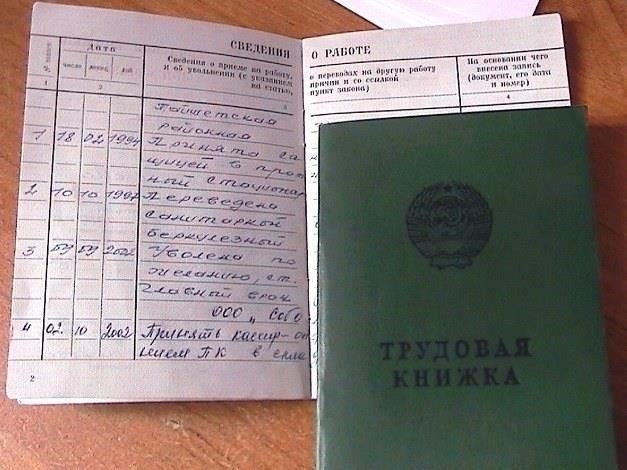 СВЕДЕНИЯ О РАБОТЕ
№ записи
Дата
число
месяц
год
Сведения о приеме на работу,
и об увольнении (с указанием
на статью,
о переводах на другую работу
причин и со ссылкой
пункт закона)
На основании чего
внесена запись
(документ, его дата
и номер)
1 2 3 4
Тайшетская
районная
1 18 02 1994 Принята са
ный стационар
2 10 10 1997 Переведена
санитаркой
беркулезный
3 09 09 2002 Уволена по
желанию, ст.
Главный врач
ООО „Собо
4 02 10 2002 Принять кассир-оп
ПК в
2
ТРУДОВАЯ
КНИЖКА